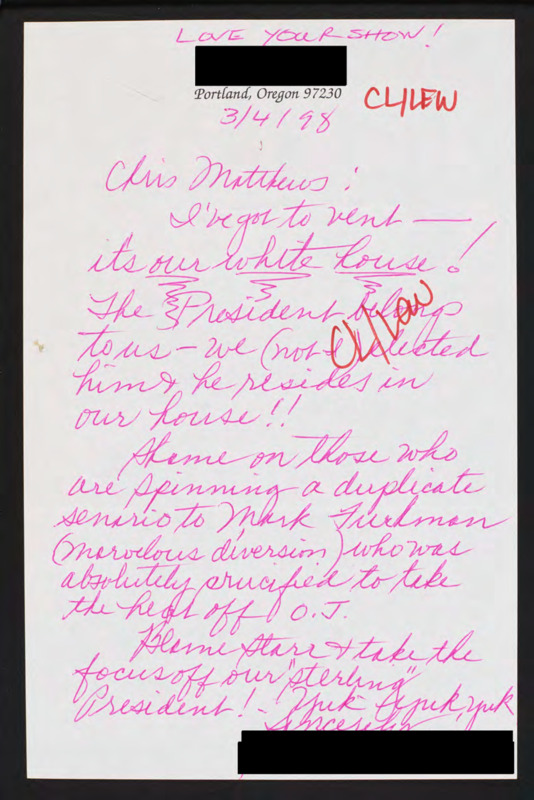 LOVE YOUR SHOW!
Portland, Oregon 97230
CL/LEW
3/4/98
Chris Matthews:
I've got to vent —
it's our white house!
The President belongs
to us – we (not I) elected
him & he resides in
our house!!
Shame on those who
are spinning a duplicate
senario to Mark Furhman
(marvelous diversion) who was
absolutely crucified to take
the heat off O.J.
Blame Starr & take the
focus off our "sterling"
President! - Yuk, yuk, yuk
Sincerely
CL/Law